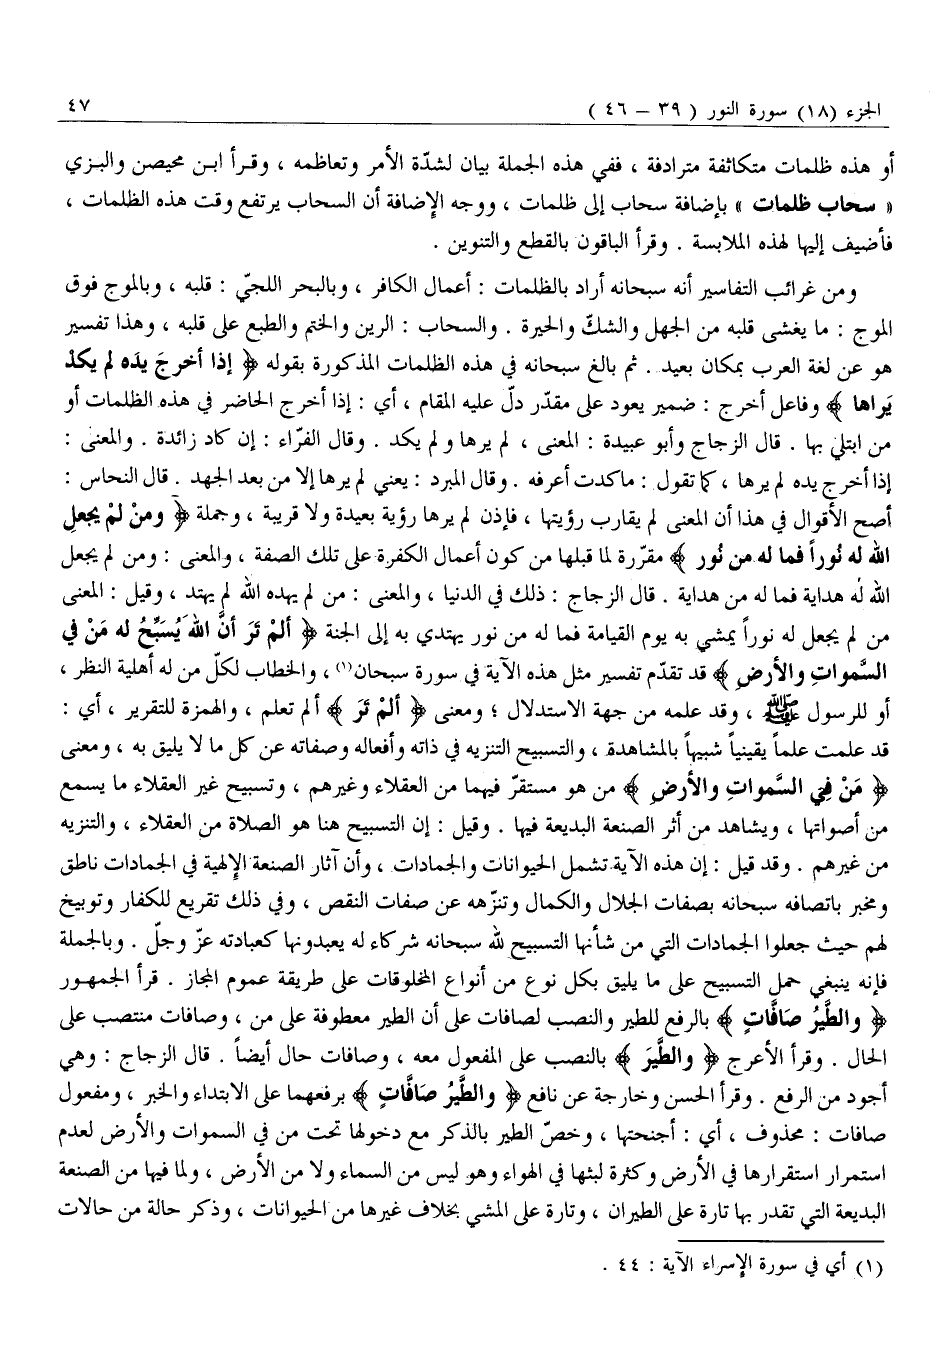 الجزء (١٨) سورة النور ( ٣٩ – ٤٦ )
٤٧
أو هذه ظلمات متكاثفة مترادفة ، ففي هذه الجملة بيان لشدّة الأمر وتعاظمه ، وقرأ ابن محيصن والبزي
« سحاب ظلمات » بإضافة سحاب إلى ظلمات ، ووجه الإضافة أن السحاب يرتفع وقت هذه الظلمات ،
فأضيف إليها لهذه الملابسة . وقرأ الباقون بالقطع والتنوين .
ومن غرائب التفاسير أنه سبحانه أراد بالظلمات : أعمال الكافر ، وبالبحر اللجيّ : قلبه ، وبالموج فوق
الموج : ما يغشى قلبه من الجهل والشكّ والحيرة . والسحاب : الرين والختم والطبع على قلبه ، وهذا تفسير
هو عن لغة العرب بمكان بعيد . ثم بالغ سبحانه في هذه الظلمات المذكورة بقوله ﴿ إذا أخرجَ يدَه لم يكدْ
يَراها ﴾ وفاعل أخرج : ضمير يعود على مقدّر دلّ عليه المقام ، أي : إذا أخرج الحاضر في هذه الظلمات أو
من ابتلي بها . قال الزجاج وأبو عبيدة : المعنى ، لم يرها ولم يكد . وقال الفرّاء : إن كاد زائدة . والمعنى :
إذا أخرج يده لم يرها ، كما تقول : ماكدت أعرفه . وقال المبرد : يعني لم يرها إلا من بعد الجهد . قال النحاس :
أصح الأقوال في هذا أن المعنى لم يقارب رؤيتها ، فإذن لم يرها رؤية بعيدة ولا قريبة ، وجملة ﴿ ومنْ لمْ يجعلِ
الله له نُوراً فما له من نُور ﴾ مقرّرة لما قبلها من كون أعمال الكفرة على تلك الصفة ، والمعنى : ومن لم يجعل
الله له هداية فما له من هداية . قال الزجاج : ذلك في الدنيا ، والمعنى : من لم يهده الله لم يهتد ، وقيل : المعنى
من لم يجعل له نوراً يمشي به يوم القيامة فما له من نور يهتدي به إلى الجنة ﴿ ألمْ تَرَ أنَّ اللهَ يُسَبِّحُ له مَنْ في
السَّمواتِ والأرضِ ﴾ قد تقدّم تفسير مثل هذه الآية في سورة سبحان(١) ، والخطاب لكلّ من له أهلية النظر ،
أو للرسول ﷺ ، وقد علمه من جهة الاستدلال ؛ ومعنى ﴿ ألمْ تَرَ ﴾ ألم تعلم ، والهمزة للتقرير ، أي :
قد علمت علماً يقينياً شبيهاً بالمشاهدة ، والتسبيح التنزيه في ذاته وأفعاله وصفاته عن كل ما لا يليق به ، ومعنى
﴿ مَنْ فِي السَّمواتِ والأرضِ ﴾ من هو مستقرّ فيهما من العقلاء وغيرهم ، وتسبيح غير العقلاء ما يسمع
من أصواتها ، ويشاهد من أثر الصنعة البديعة فيها . وقيل : إن التسبيح هنا هو الصلاة من العقلاء ، والتنزيه
من غيرهم . وقد قيل : إن هذه الآية تشمل الحيوانات والجمادات ، وأن آثار الصنعة الإلهية في الجمادات ناطق
ومخبر باتصافه سبحانه بصفات الجلال والكمال وتنزّهه عن صفات النقص ، وفي ذلك تقريع للكفار وتوبيخ
لهم حيث جعلوا الجمادات التي من شأنها التسبيح لله سبحانه شركاء له يعبدونها كعبادته عزّ وجلّ . وبالجملة
فإنه ينبغي حمل التسبيح على ما يليق بكل نوع من أنواع المخلوقات على طريقة عموم المجاز . قرأ الجمهور
﴿ والطَّيرُ صَافَّاتٍ ﴾ بالرفع للطير والنصب لصافات على أن الطير معطوفة على من ، وصافات منتصب على
الحال . وقرأ الأعرج ﴿ والطَّيرَ ﴾ بالنصب على المفعول معه ، وصافات حال أيضاً . قال الزجاج : وهي
أجود من الرفع . وقرأ الحسن وخارجة عن نافع ﴿ والطَّيرُ صَافَّاتٌ ﴾ برفعهما على الابتداء والخبر ، ومفعول
صافات : محذوف ، أي : أجنحتها ، وخصّ الطير بالذكر مع دخولها تحت من في السموات والأرض لعدم
استمرار استقرارها في الأرض وكثرة لبثها في الهواء وهو ليس من السماء ولا من الأرض ، ولما فيها من الصنعة
البديعة التي تقدر بها تارة على الطيران ، وتارة على المشي بخلاف غيرها من الحيوانات ، وذكر حالة من حالات
(١) أي في سورة الإسراء الآية : ٤٤ .